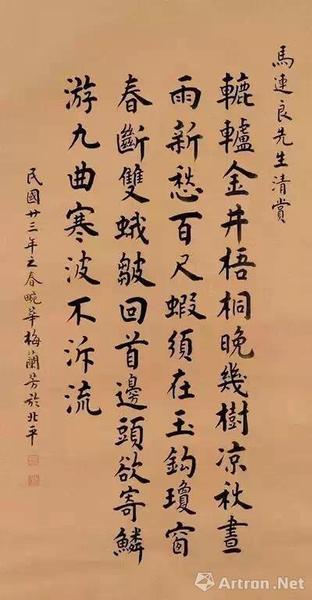 馬連良先生清賞
轆轤金井梧桐晚幾樹凉秋晝
雨新愁百尺蝦須在玉鈎瓊窗
春斷雙蛾皺回首邊頭欲寄鱗
游九曲寒波不泝流
民國廿三年之春畹華梅蘭芳於北平
Artron.Net